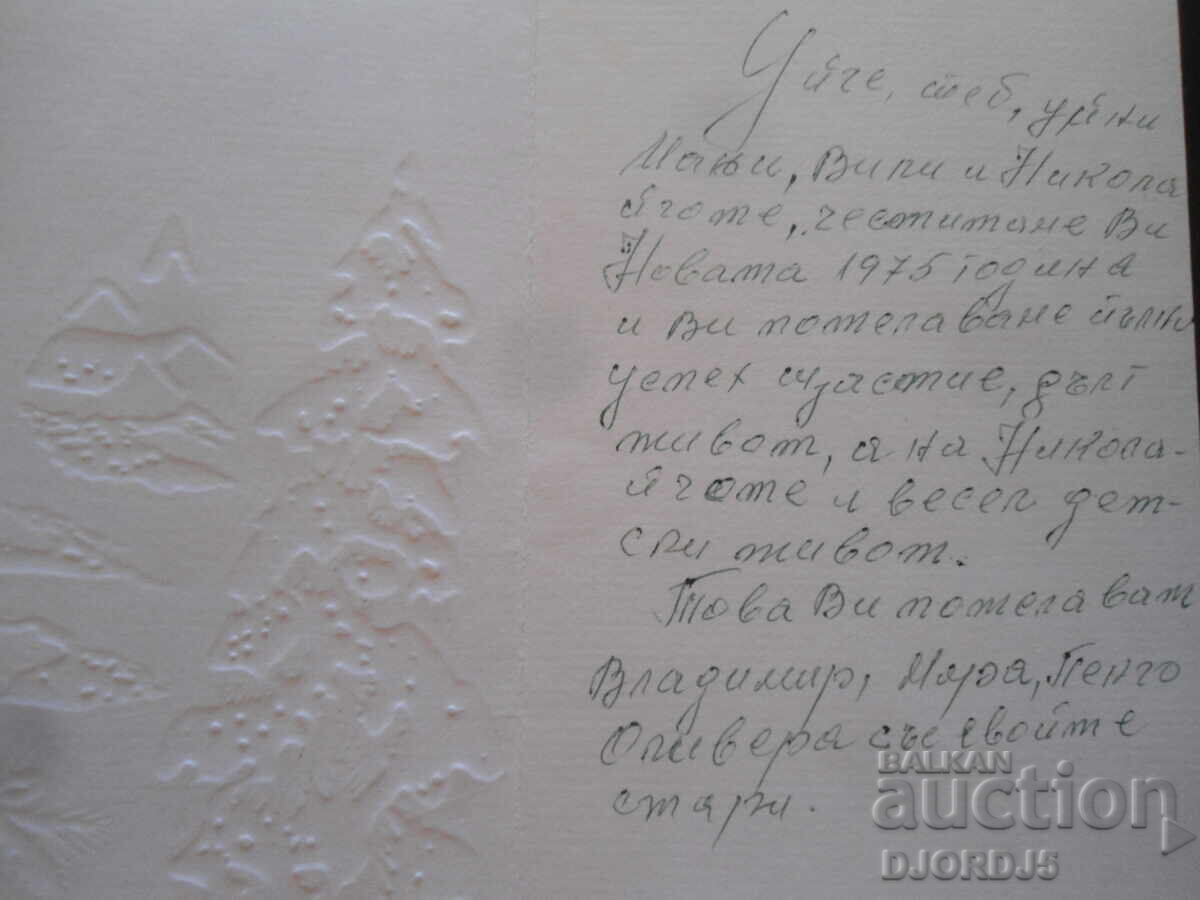 Уйче, теб, уйни
Мањи, Вили и Никола
йчоте, честитаме Ви
Новата 1975 година
и Ви пожелаваме пълно
успех щастие, дълг
живот, а на Никола-
йчоте и весел дет-
ски живот.
Това Ви пожелават
Владимир, Мара, Пенчо
Оливера със своите
стари.
BALKAN
auction
DJORDJ5